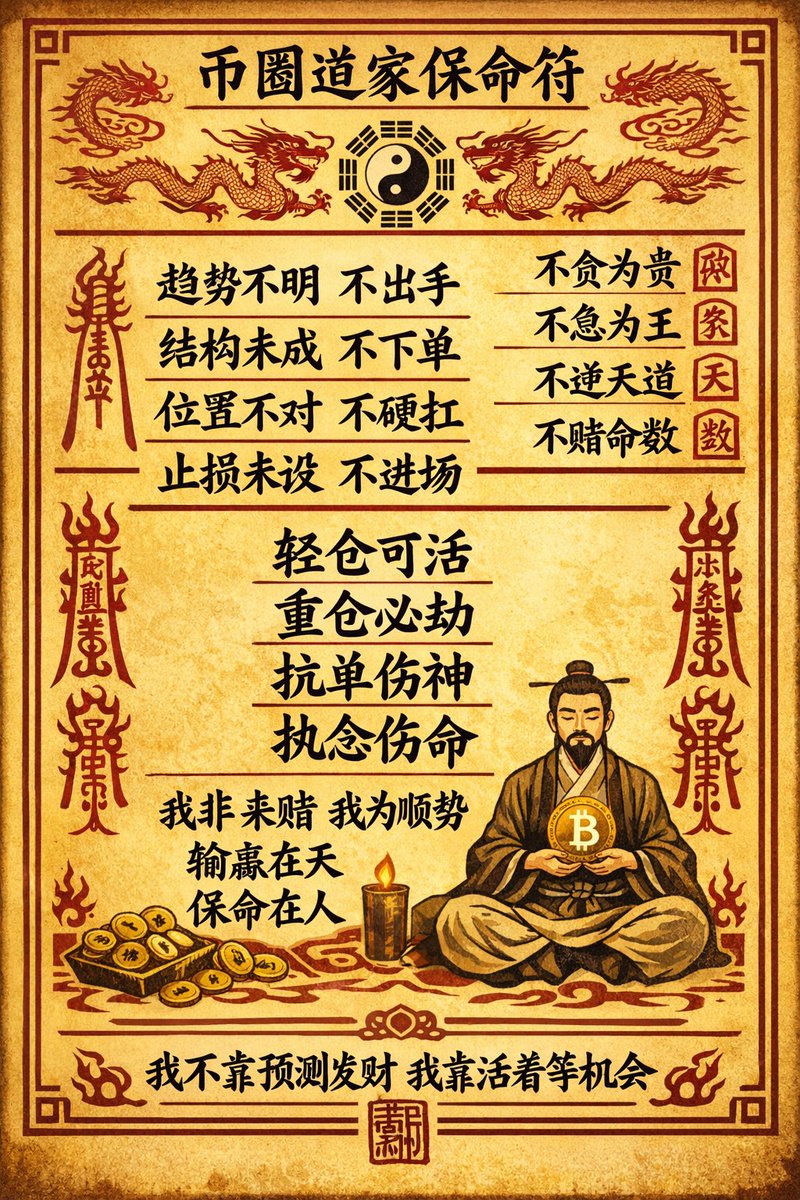 币圈道家保命符
趋势不明 不出手
结构未成 不下单
位置不对 不硬扛
止损未设 不进场
不贪为贵
不急为王
不逆天道
不赌命数
天
数
轻仓可活
重仓必劫
抗单伤神
执念伤命
我非来赌 我为顺势
输赢在天
保命在人
₿
我不靠预测发财 我靠活着等机会